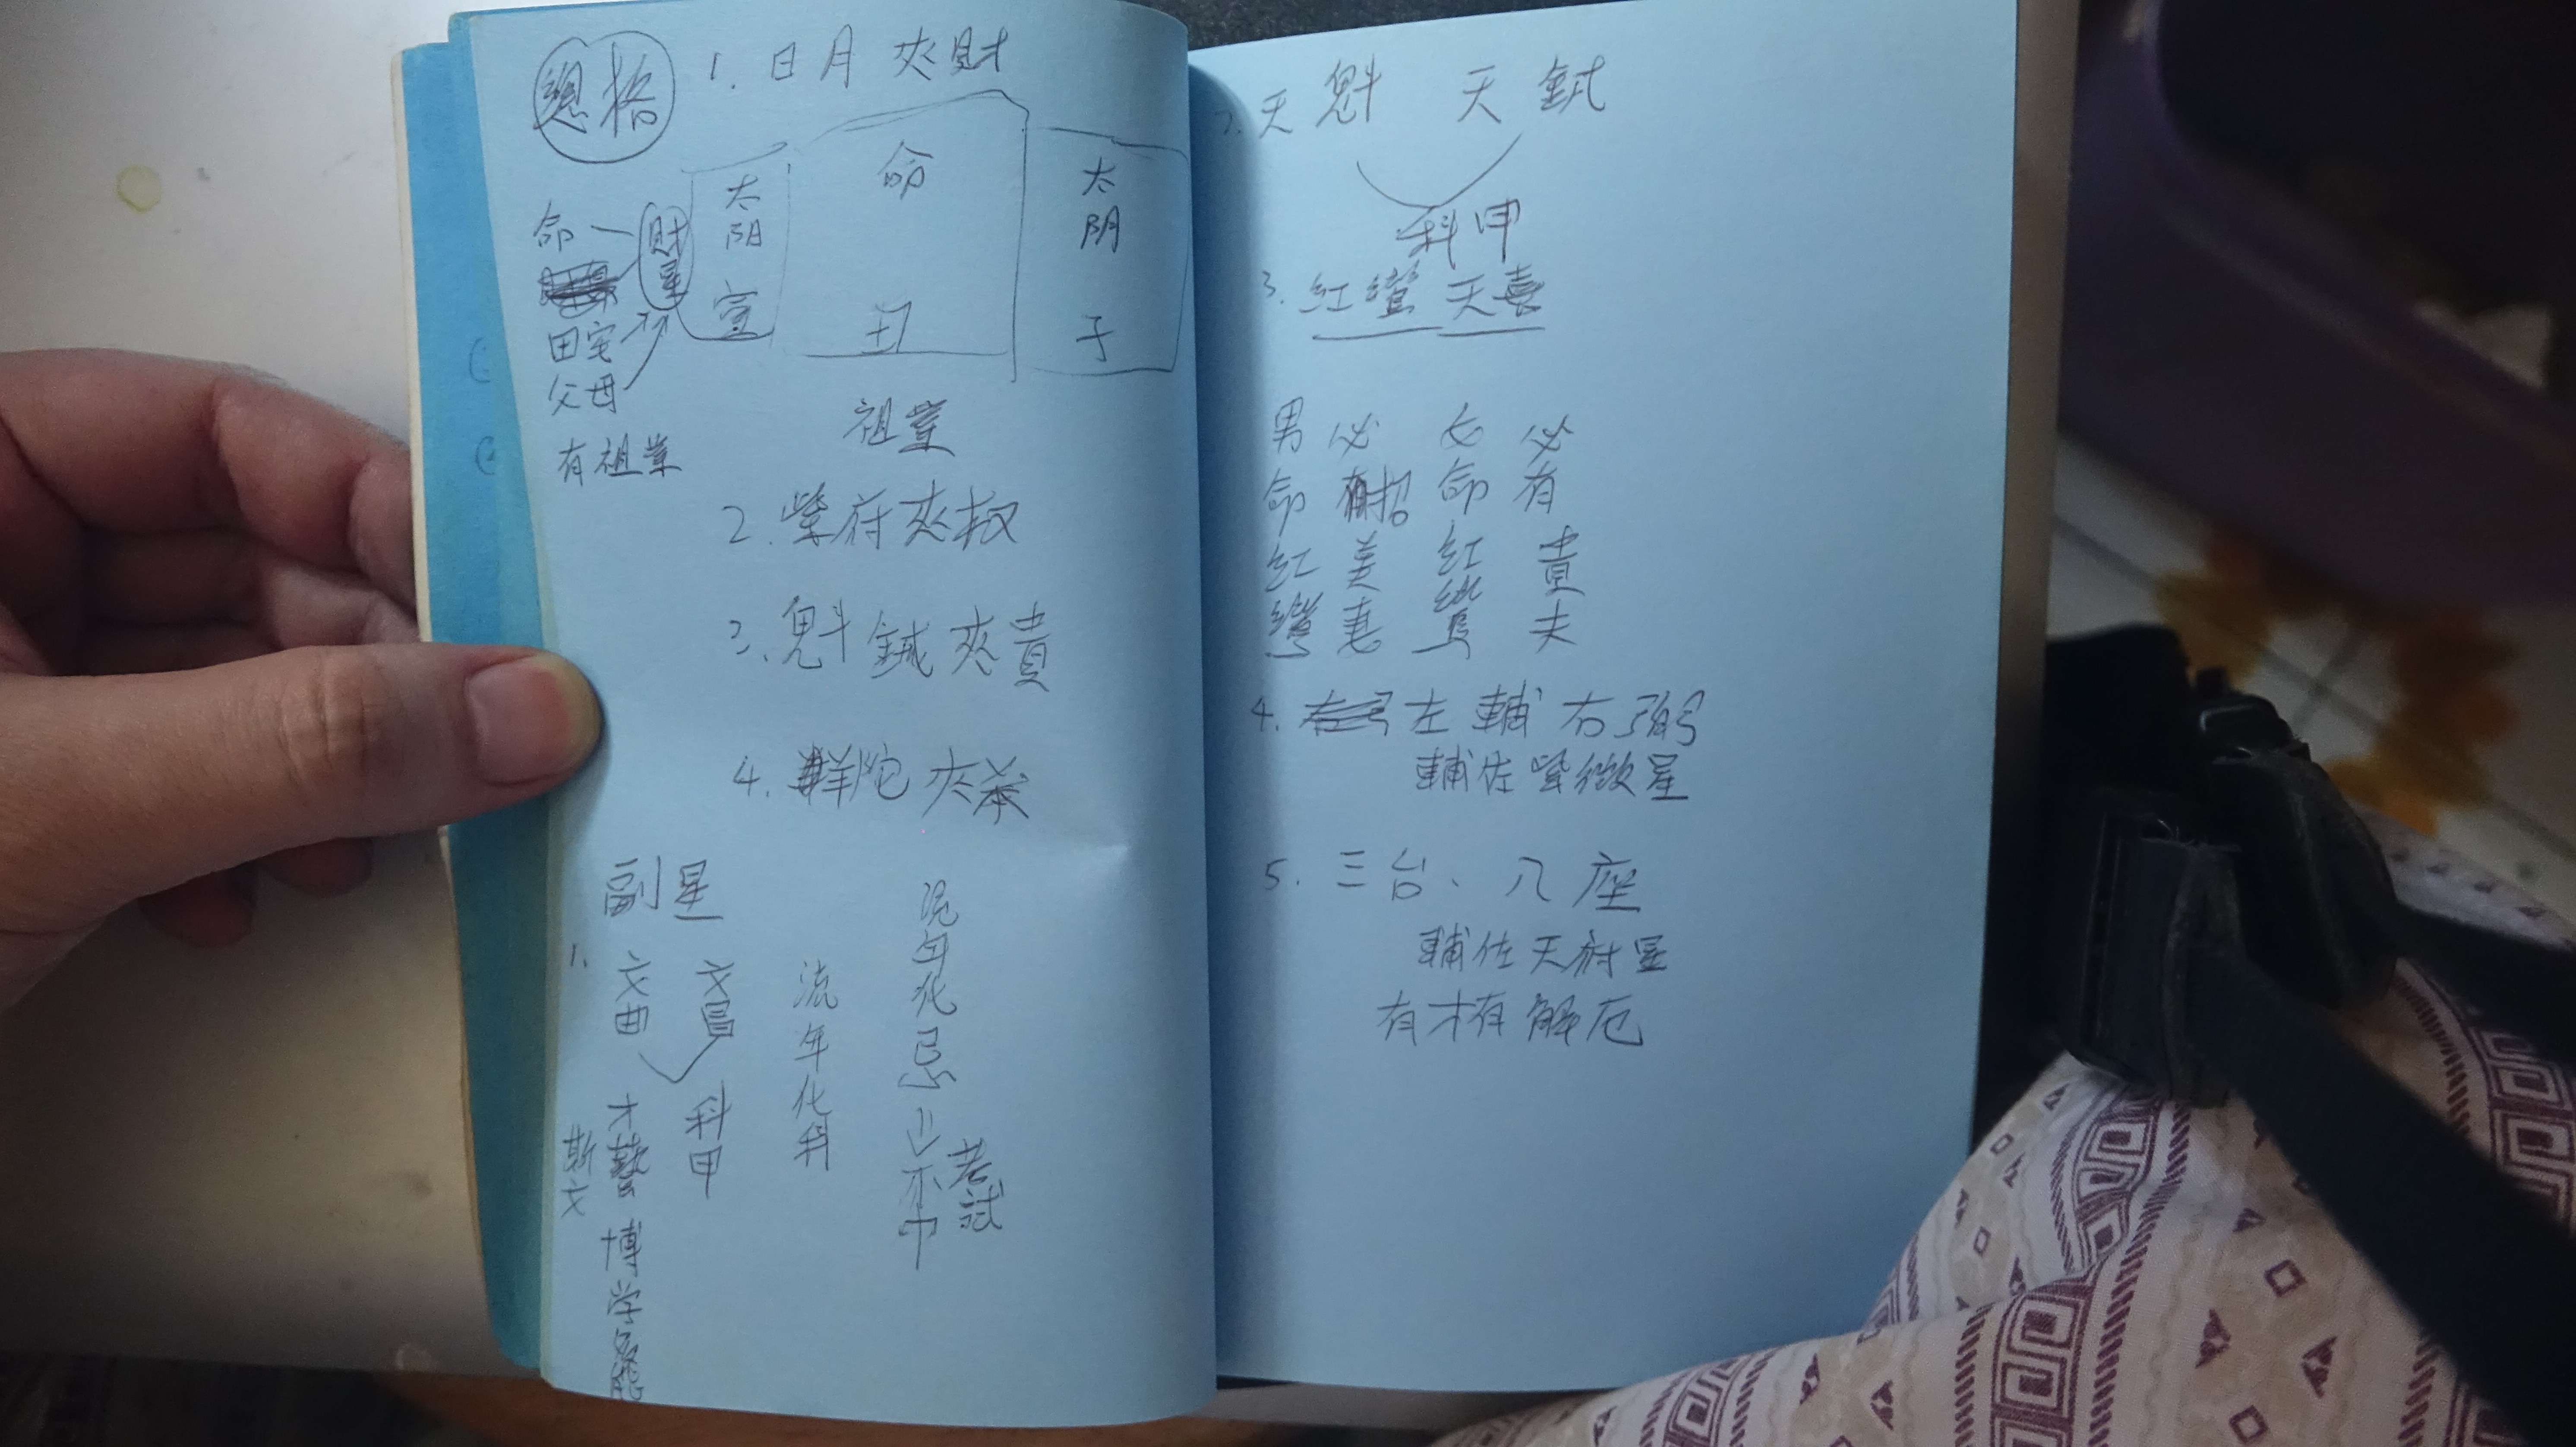 總格
1. 日月夾財
太阳 寅
命 丑
太阴 子
命
財星
田宅
父母
有祖業
祖業
2. 紫府夾权
3. 魁鉞夾貴
4. 羊陀夾杀
副星
1. 文曲 文昌
科甲
才藝
斯文
博学多能
流年化科
流年化忌
考試
不中
2. 天魁 天鉞
科甲
3. 紅鸞 天喜
男命紅鸞
必招美妻
女命紅鸞
必有貴夫
4. 左輔右弼
輔佐紫微星
5. 三台、八座
輔佐天府星
有才有解厄